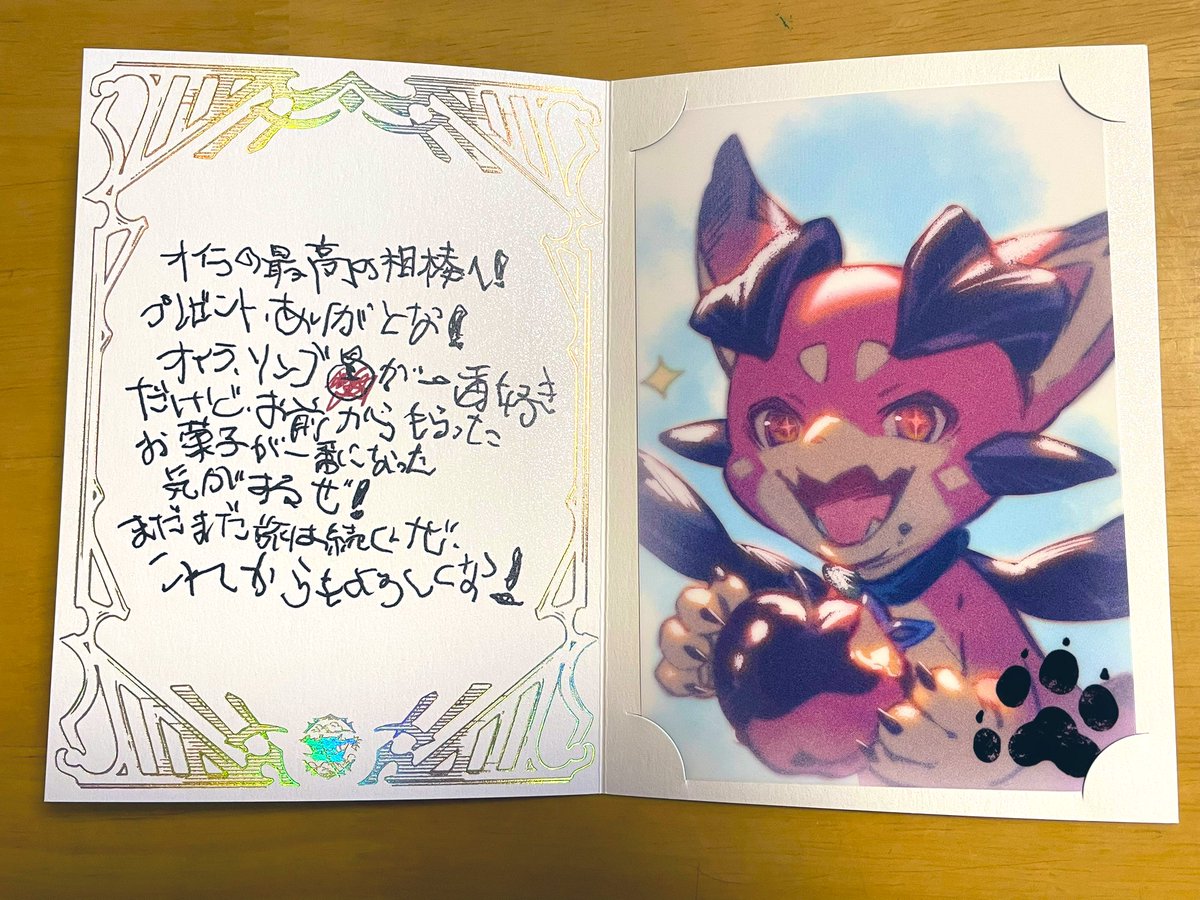 オイラの最高の相棒へ!
プレゼント、ありがとな!
オイラ、リンゴ が一番好き
だけど、お前からもらった
お菓子が一番になった
気がするぜ!
まだまだ旅は続くぜ、
これからもよろしくな!